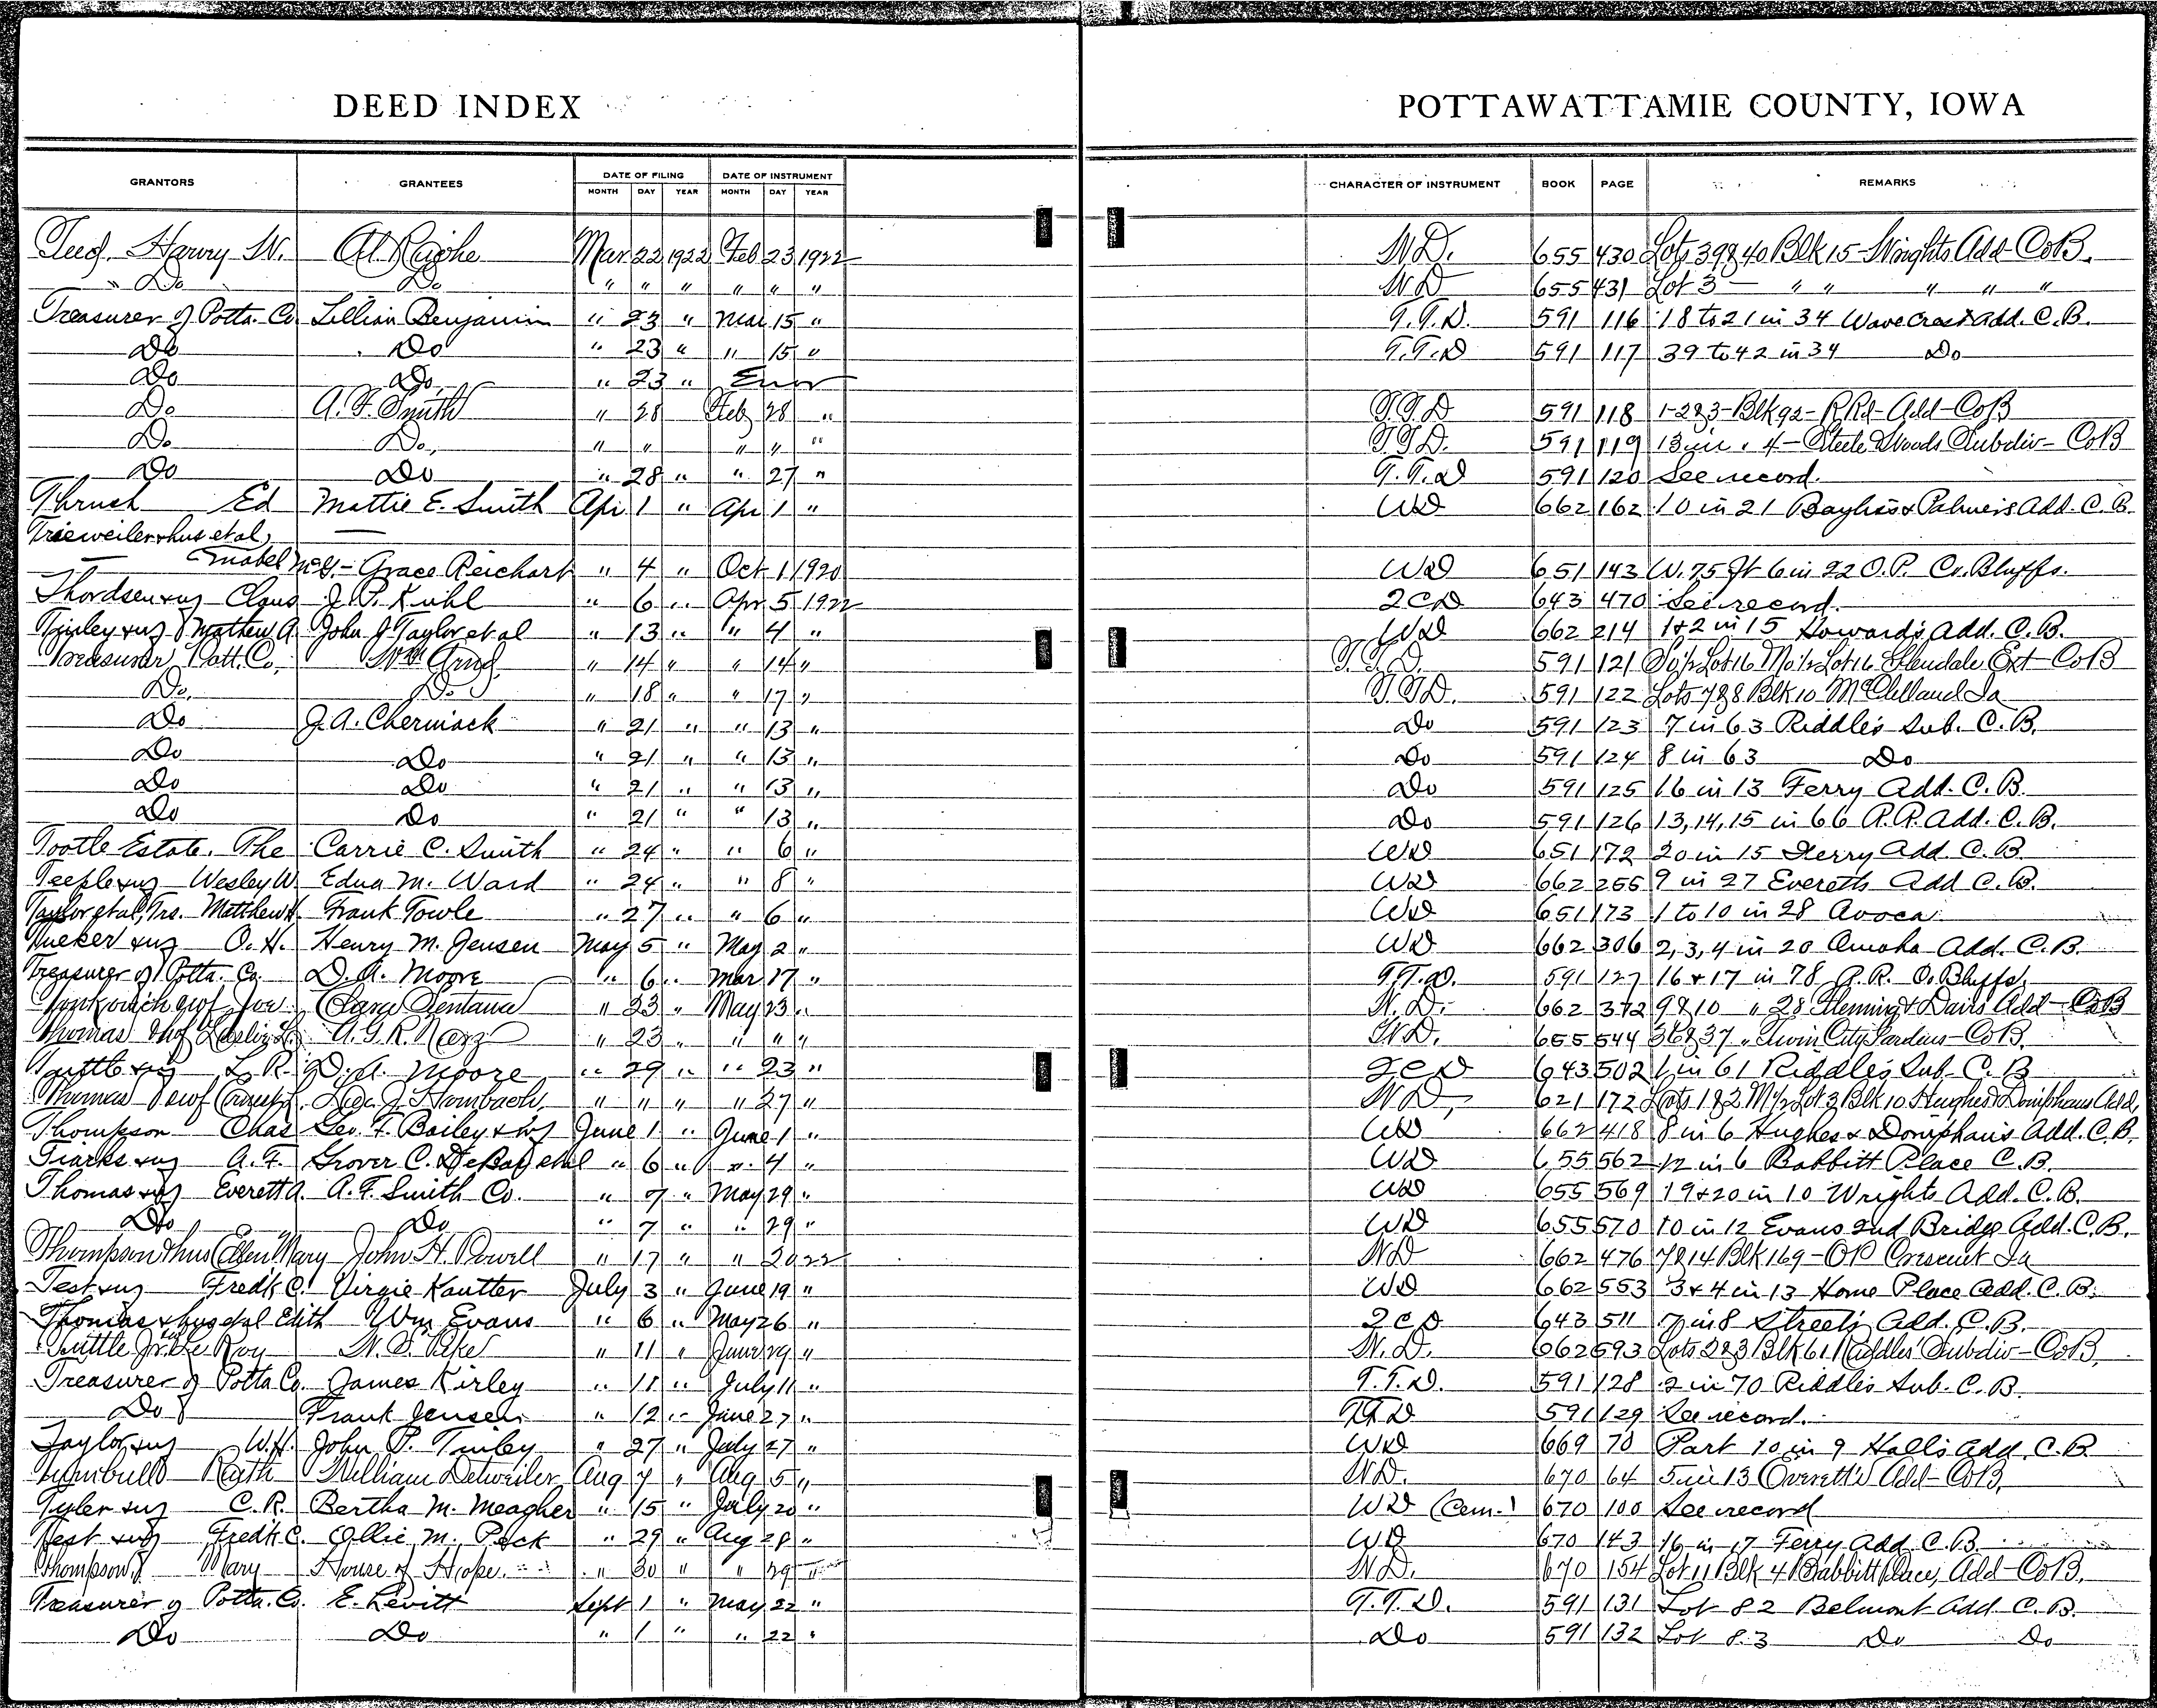 DEED INDEX
POTTAWATTAMIE COUNTY, IOWA
GRANTORS GRANTEES DATE OF FILING DATE OF INSTRUMENT CHARACTER OF INSTRUMENT BOOK PAGE REMARKS
MONTH DAY YEAR MONTH DAY YEAR
Harry W. Al Mar 22 1922 Feb 23 1922 W.D. 655 430 Lots 39 & 40 Blk 15 Wrights Add CoB.
" Do Do " " " " " " WD 655 431 Lot 3 — " " " " "
Treasurer of Potta. Co Lillian Benjamin " 23 " Mar 15 " T.T.D. 591 116 18 to 21 in 34 Wave Crest Add. C.B.
Do Do " 23 " " 15 " T.T.D 591 117 39 to 42 in 34 Do
Do Do " 23 " Error
Do A.F. Smith " 28 Feb 28 " T.T.D 591 118 1-2&3-Blk 92-R Rd-Add-CoB
Do Do, " " " " " T.T.D. 591 119 13 in 4 - Steele & Woods Subdiv-CoB
Do Do " 28 " " 27 " T.T.D 591 120 See record.
Ed Mattie E. Smith Apr 1 " Apr 1 " WD 662 162 10 in 21 Bayliss & Palmers Add. C.B.
Trieweiler & hus et al,
Mabel McG. - Grace Reichart " 4 " Oct 1 1920 WD 651 143 W. 75 ft 6 in 22 O.P. Co. Bluffs.
Thordsen & wf Claus J.P. Kuhl " 6 " Apr 5 1922 QCD 643 470 See record.
Tinley & wf Mathew A. John J Taylor et al " 13 " " 4 " WD 662 214 1 & 2 in 15 Howard's Add. C.B.
Treasurer Pott. Co. Wm " 14 " " 14 " T.T.D. 591 121 So ½ Lot 16 No ½ Lot 16 Glendale Ext-CoB
Do, Do " 18 " " 17 " T.T.D. 591 122 Lots 7&8 Blk 10 McClelland Ia
Do J.A. Cherniack " 21 " " 13 " Do 591 123 7 in 63 Riddle's Sub. C.B.
Do Do " 21 " " 13 " Do 591 124 8 in 63 Do
Do Do " 21 " " 13 " Do 591 125 16 in 13 Ferry Add. C.B.
Do Do " 21 " " 13 " Do 591 126 13, 14, 15 in 66 R.R. Add. C.B.
Tootle Estate. The Carrie C. Smith " 24 " " 6 " WD 651 172 20 in 15 Ferry Add C.B.
Teeple & wf Wesley W. Edna M. Ward " 24 " " 8 " WD 662 255 9 in 27 Everetts Add C.B.
Taylor et al, Trs. Matthew Frank Towle " 27 " " 6 " WD 651 173 1 to 10 in 28 Avoca
& wf O.H. Henry M. Jensen May 5 " May 2 " WD 662 306 2, 3, 4 in 20 Omaha Add. C.B.
Treasurer of Potta. Co. D.A. Moore " 6 " Mar 17 " T.T.D. 591 127 16 & 17 in 78 R.R. C. Bluffs.
" 23 " May 23 " W.D. 662 372 9 & 10 " 28 Fleming & Davis Add-CoB
Thomas " 23 " " " " W.D. 655 544 36 & 37 " Twin City Gardens-CoB.
Tuttle & wf L.R. D.A. Moore " 29 " " 23 " QCD 643 502 1 in 61 Riddle's Sub. C.B
Thomas " " " " 27 " W.D. 621 172 Lots 1&2 N ½ Lot 3 Blk 10 Hughes & Doniphans Add,
Thompson Chas Geo. F. Bailey & wf June 1 " June 1 " WD 662 418 8 in 6 Hughes & Doniphan's Add. C.B.
Tiarks & wf A.F. Grover C. DeBar et al " 6 " " 4 " WD 655 562 12 in 6 Babbitt Place C.B.
Thomas & wf Everett A. A.F. Smith Co. " 7 " May 29 " WD 655 569 19 & 20 in 10 Wrights Add. C.B.
Do Do " 7 " " 29 " WD 655 570 10 in 12 Evans 2nd Bridge Add. C.B.
Thompson & hus Ellen Mary John H. Powell " 17 " " 20 22 WD 662 476 7 & 14 Blk 169-OP Crescent Ia
Test & wf Fredk C. Virgie Kautter July 3 " June 19 " WD 662 553 3 & 4 in 13 Home Place Add. C.B.
Thomas & hus et al Edith Wm Evans " 6 " May 26 " QCD 643 511 7 in 8 Street's Add. C.B.
Tuttle Jr. Le Roy W.S. " 11 " June 29 " W.D. 662 593 Lots 2&3 Blk 61 Riddles Subdiv-CoB.
Treasurer of Potta Co. James Kirley " 11 " July 11 " T.T.D. 591 128 2 in 70 Riddle's Sub. C.B.
Do Frank Jensen " 12 " June 27 " TTD 591 129 See record.
Taylor & wf W.H. John P. Tinley " 27 " July 27 " WD 669 70 Part 10 in 9 Hall's Add. C.B
Turnbull Ruth William Detweiler Aug 7 " Aug 5 " W.D. 670 64 5 in 13 Everett's Add-CoB.
Tyler & wf C.R. Bertha M. Meagher " 15 " July 20 " WD (Cem.) 670 100 See record
Test & wf Fredk C. Ollie M. Peck " 29 " Aug 28 " WD 670 143 16 in 17 Ferry Add C.B.
Thompson Mary House of Hope " 30 " " 29 " W.D. 670 154 Lot 11 Blk 4 Babbitt Place, Add-CoB.
Treasurer of Potta. Co. E. Levitt Sept 1 " May 22 " T.T.D. 591 131 Lot 82 Belmont Add. C.B.
Do Do " 1 " " 22 " Do 591 132 Lot 83 Do Do